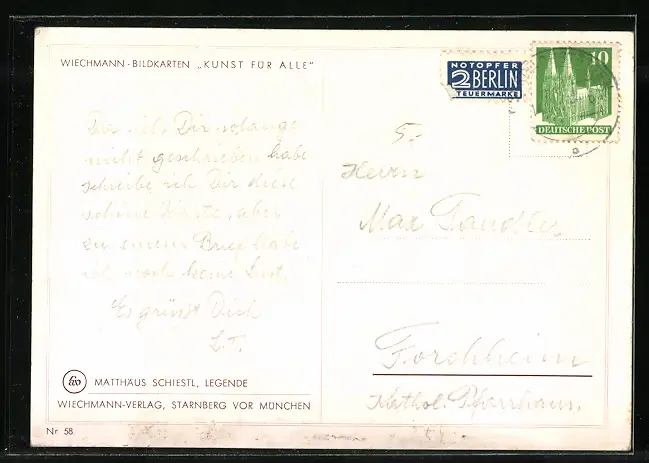 WIECHMANN-BILDKARTEN „KUNST FÜR ALLE"
NOTOPFER
2 BERLIN
STEUERMARKE
10
DEUTSCHE POST
Dir solange
nicht geschrieben habe
schreibe ich Dir diese
schöne Karte, aber
zu einem Brief habe
ich noch keine Lust.
Es grüsst Dich
L.T.
5.-
Herrn
Max Tandler
Forchheim
Kathol. Pfarrhaus.
MATTHÄUS SCHIESTL, LEGENDE
WIECHMANN-VERLAG, STARNBERG VOR MÜNCHEN
Nr 58